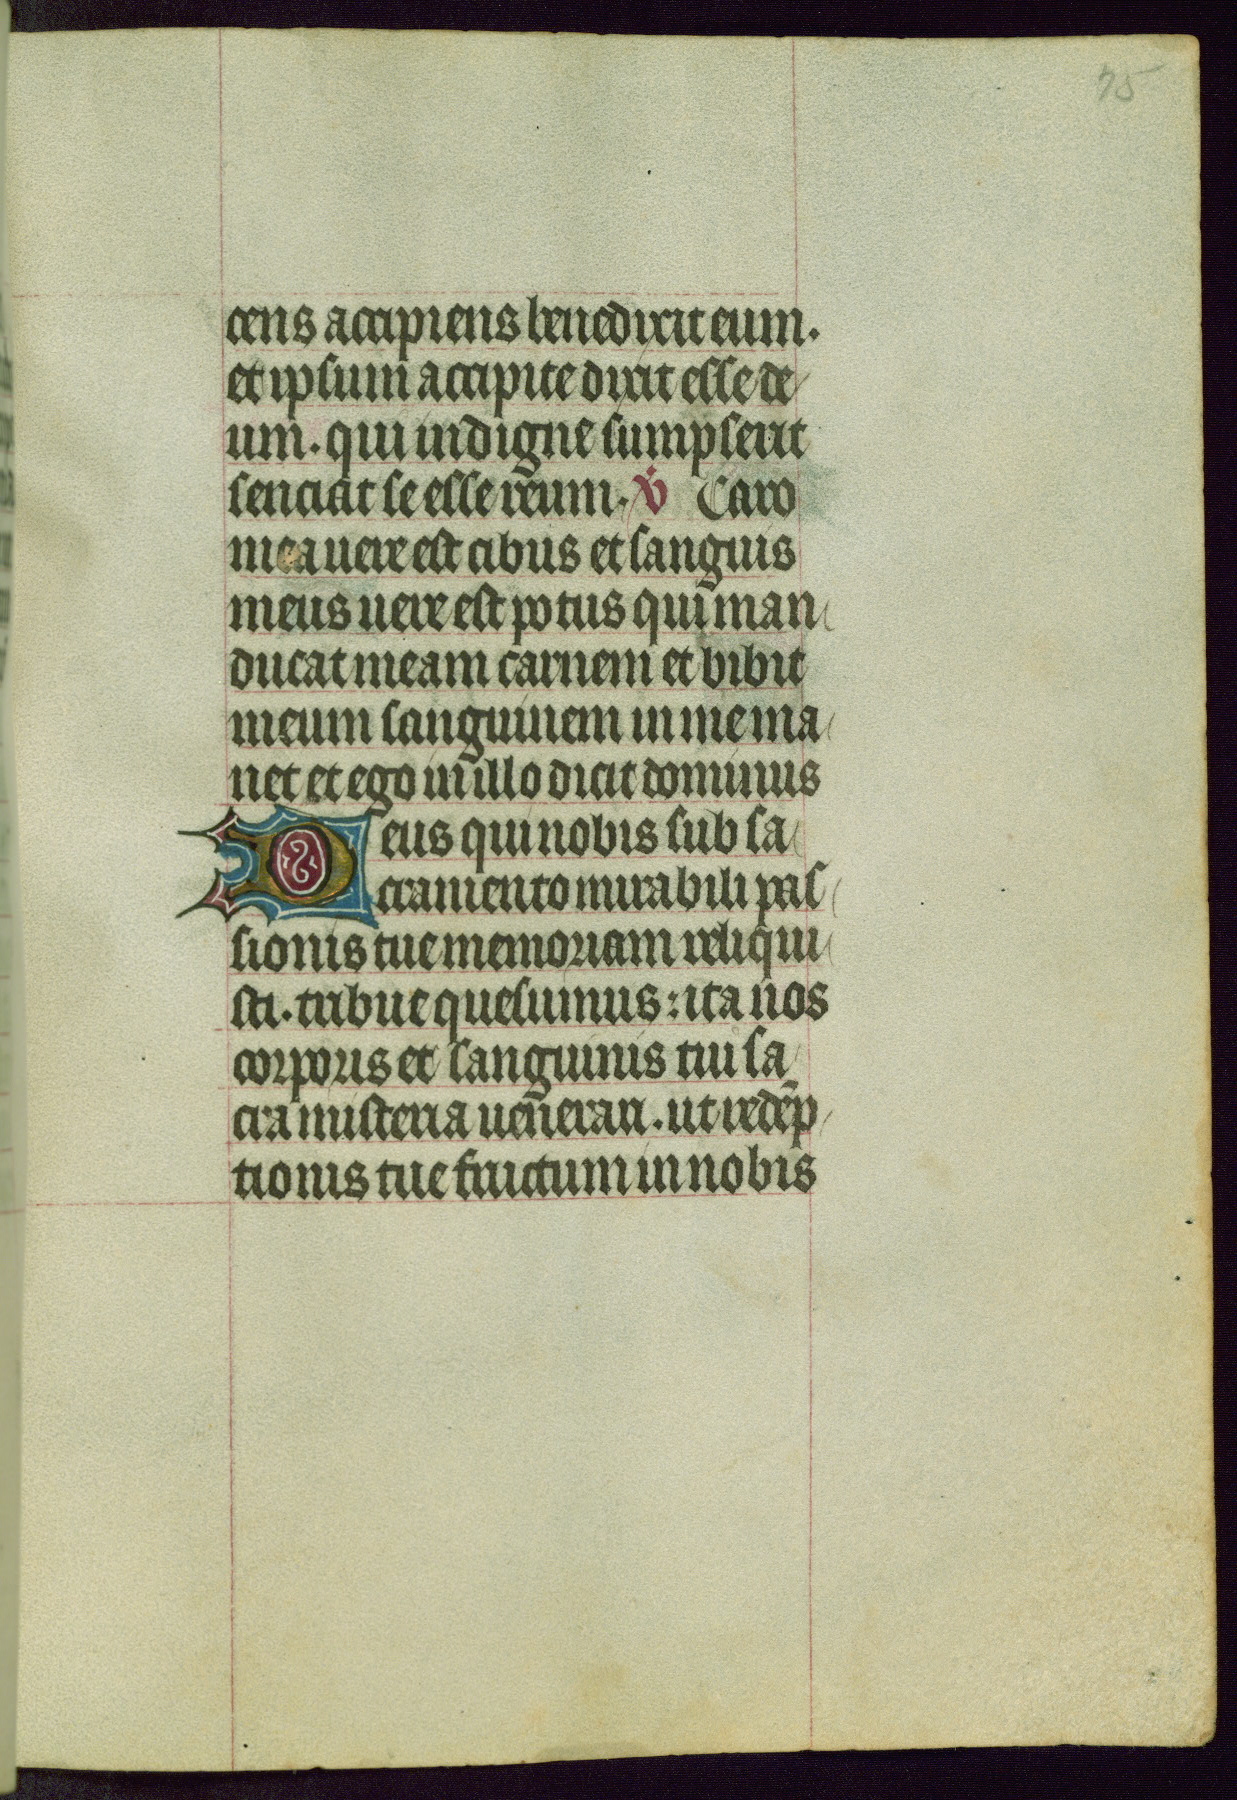 75
cens accipiens benedixit eum.
et ipsum accipite dixit esse de
um. qui indigne sumpserit
senciat se esse reum. v̇ Caro
mea uere est cibus et sanguis
meus uere est potus qui man
ducat meam carnem et bibit
meum sanguinem in me ma
net et ego in illo dicit dominus
Deus qui nobis sub sa
cramento mirabili pas
sionis tue memoriam reliqui
sti. tribue quesumus: ita nos
corporis et sanguinis tui sa
cra misteria uenerari. ut redēp
tionis tue fructum in nobis